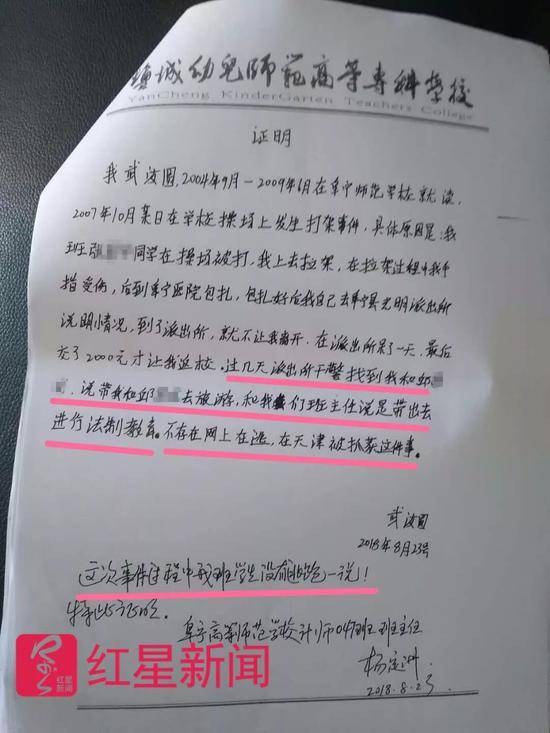 盐城幼儿师范高等专科学校
YanCheng KinderGarten Teachers College
证明
我武汝圆,2004年9月—2009年6月在阜宁师范学校就读,
2007年10月某日在学校操场上发生打架事件,具体原因是:我
班张 同学在操场被打,我上去拉架,在拉架过程中我手
指受伤,后到阜宁医院包扎,包扎好后我自己去阜宁县光明派出所
说明情况,到了派出所,就不让我离开,在派出所呆了一天,最后
交了2000元才让我返校。过几天派出所干警找到我和邱
,说带我和邱 去旅游,和我们班主任说是带出去
进行法制教育。不存在网上在逃,在天津被抓获这件事。
武汝圆
2018年8月23号
这次事件过程中我班学生没有逃跑一说!
特此证明。
阜宁高等师范学校计师047班班主任
杨
2018.8.23
红星新闻
红星新闻